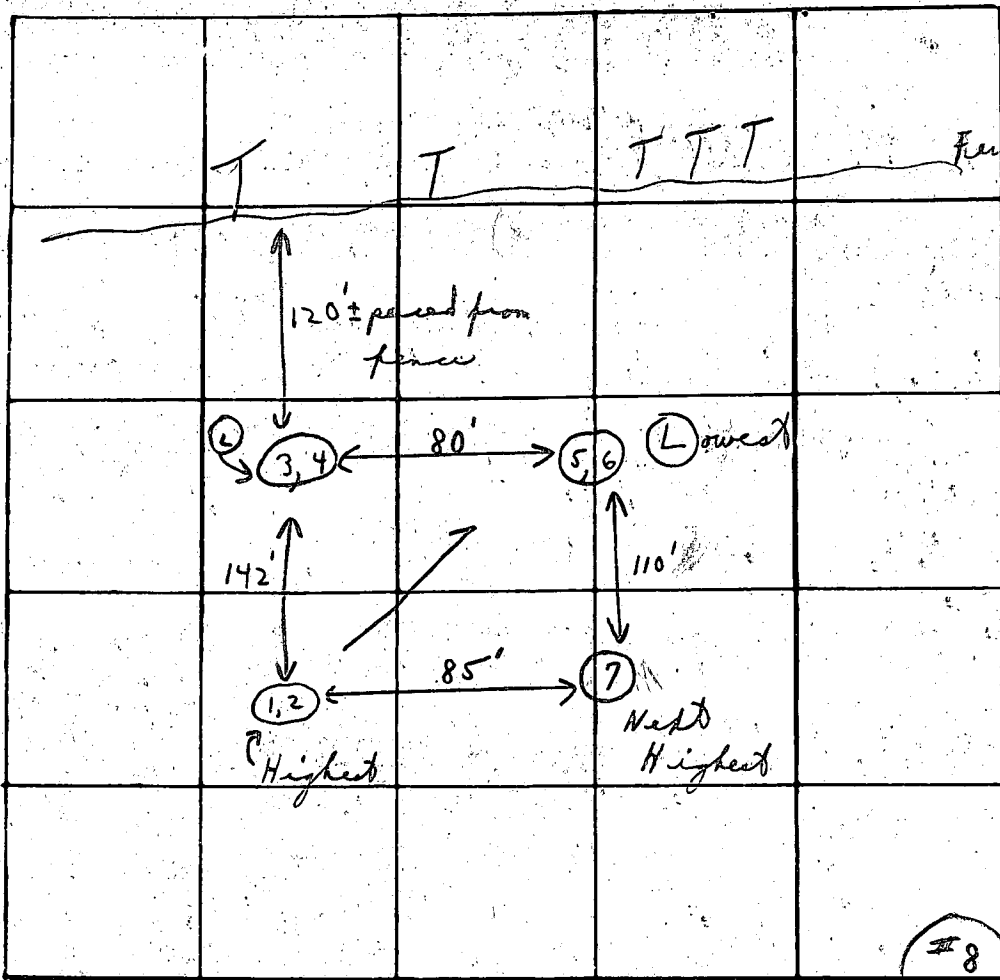 T T T T T
120'± paced from
fence
L 3, 4 80' 5, 6 Lowest
142' 110'
1, 2 85' 7
Next
Highest Highest
#8